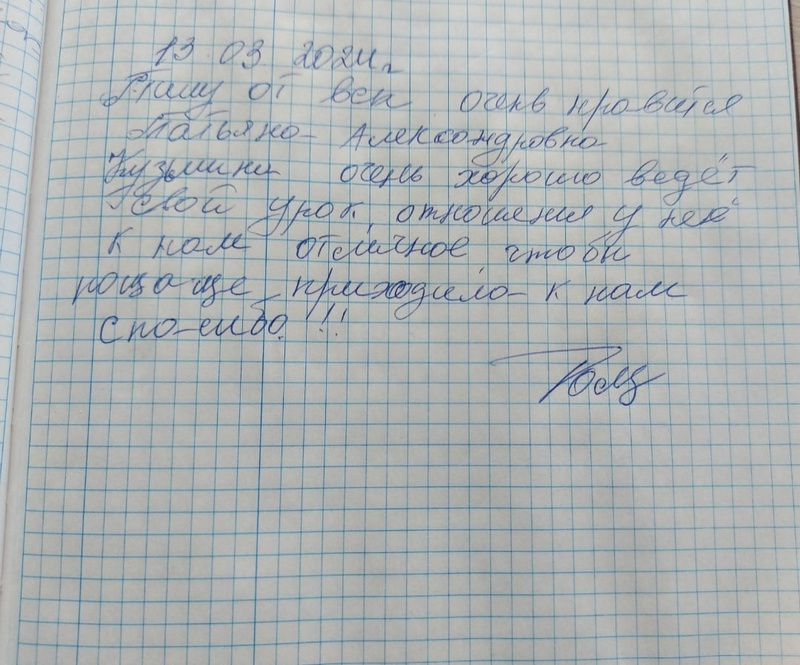 13 03 2024г
Пишу от всех очень нравится
Татьяна Александровна
Кузьмина очень хорошо ведёт
свой урок, отношения у неё
к нам отличное чтобы
почаще приходила к нам
спасибо!!!